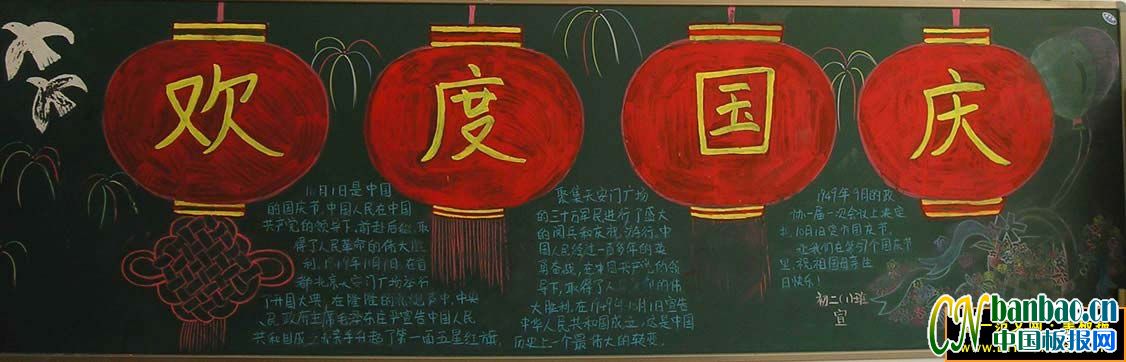 欢度国庆
10月1日是中国
的国庆节,中国人民在中国
共产党的领导下,前赴后继,取
得了人民革命的伟大胜
利。1949年10月1日,在首
都北京天安门广场举行
了开国大典,在隆隆的礼炮声中,中央
人民政府主席毛泽东庄严宣告中国人民
共和国成立,并亲手升起了第一面五星红旗,
聚集天安门广场
的三十万军民进行了盛大
的阅兵和庆祝游行。中
国人民经过一百多年的英
勇奋战,在中国共产党的领
导下,取得了人民革命的伟
大胜利,在1949年10月1日宣告
中华人民共和国成立,这是中国
历史上一个最伟大的转变。
1949年9月的政
协一届一次会议上决定
把10月1日定为国庆节。
让我们在第57个国庆节
里,祝祖国母亲生
日快乐!
初二(1)班
宣
CN banbao.cn
中国板报网